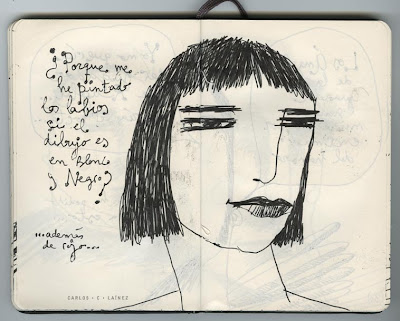 ¿Porque me
he pintado
los labios
si el
dibujo es
en Blanco
y Negro?
...además
de rojo...
CARLOS · C · LAÍNEZ